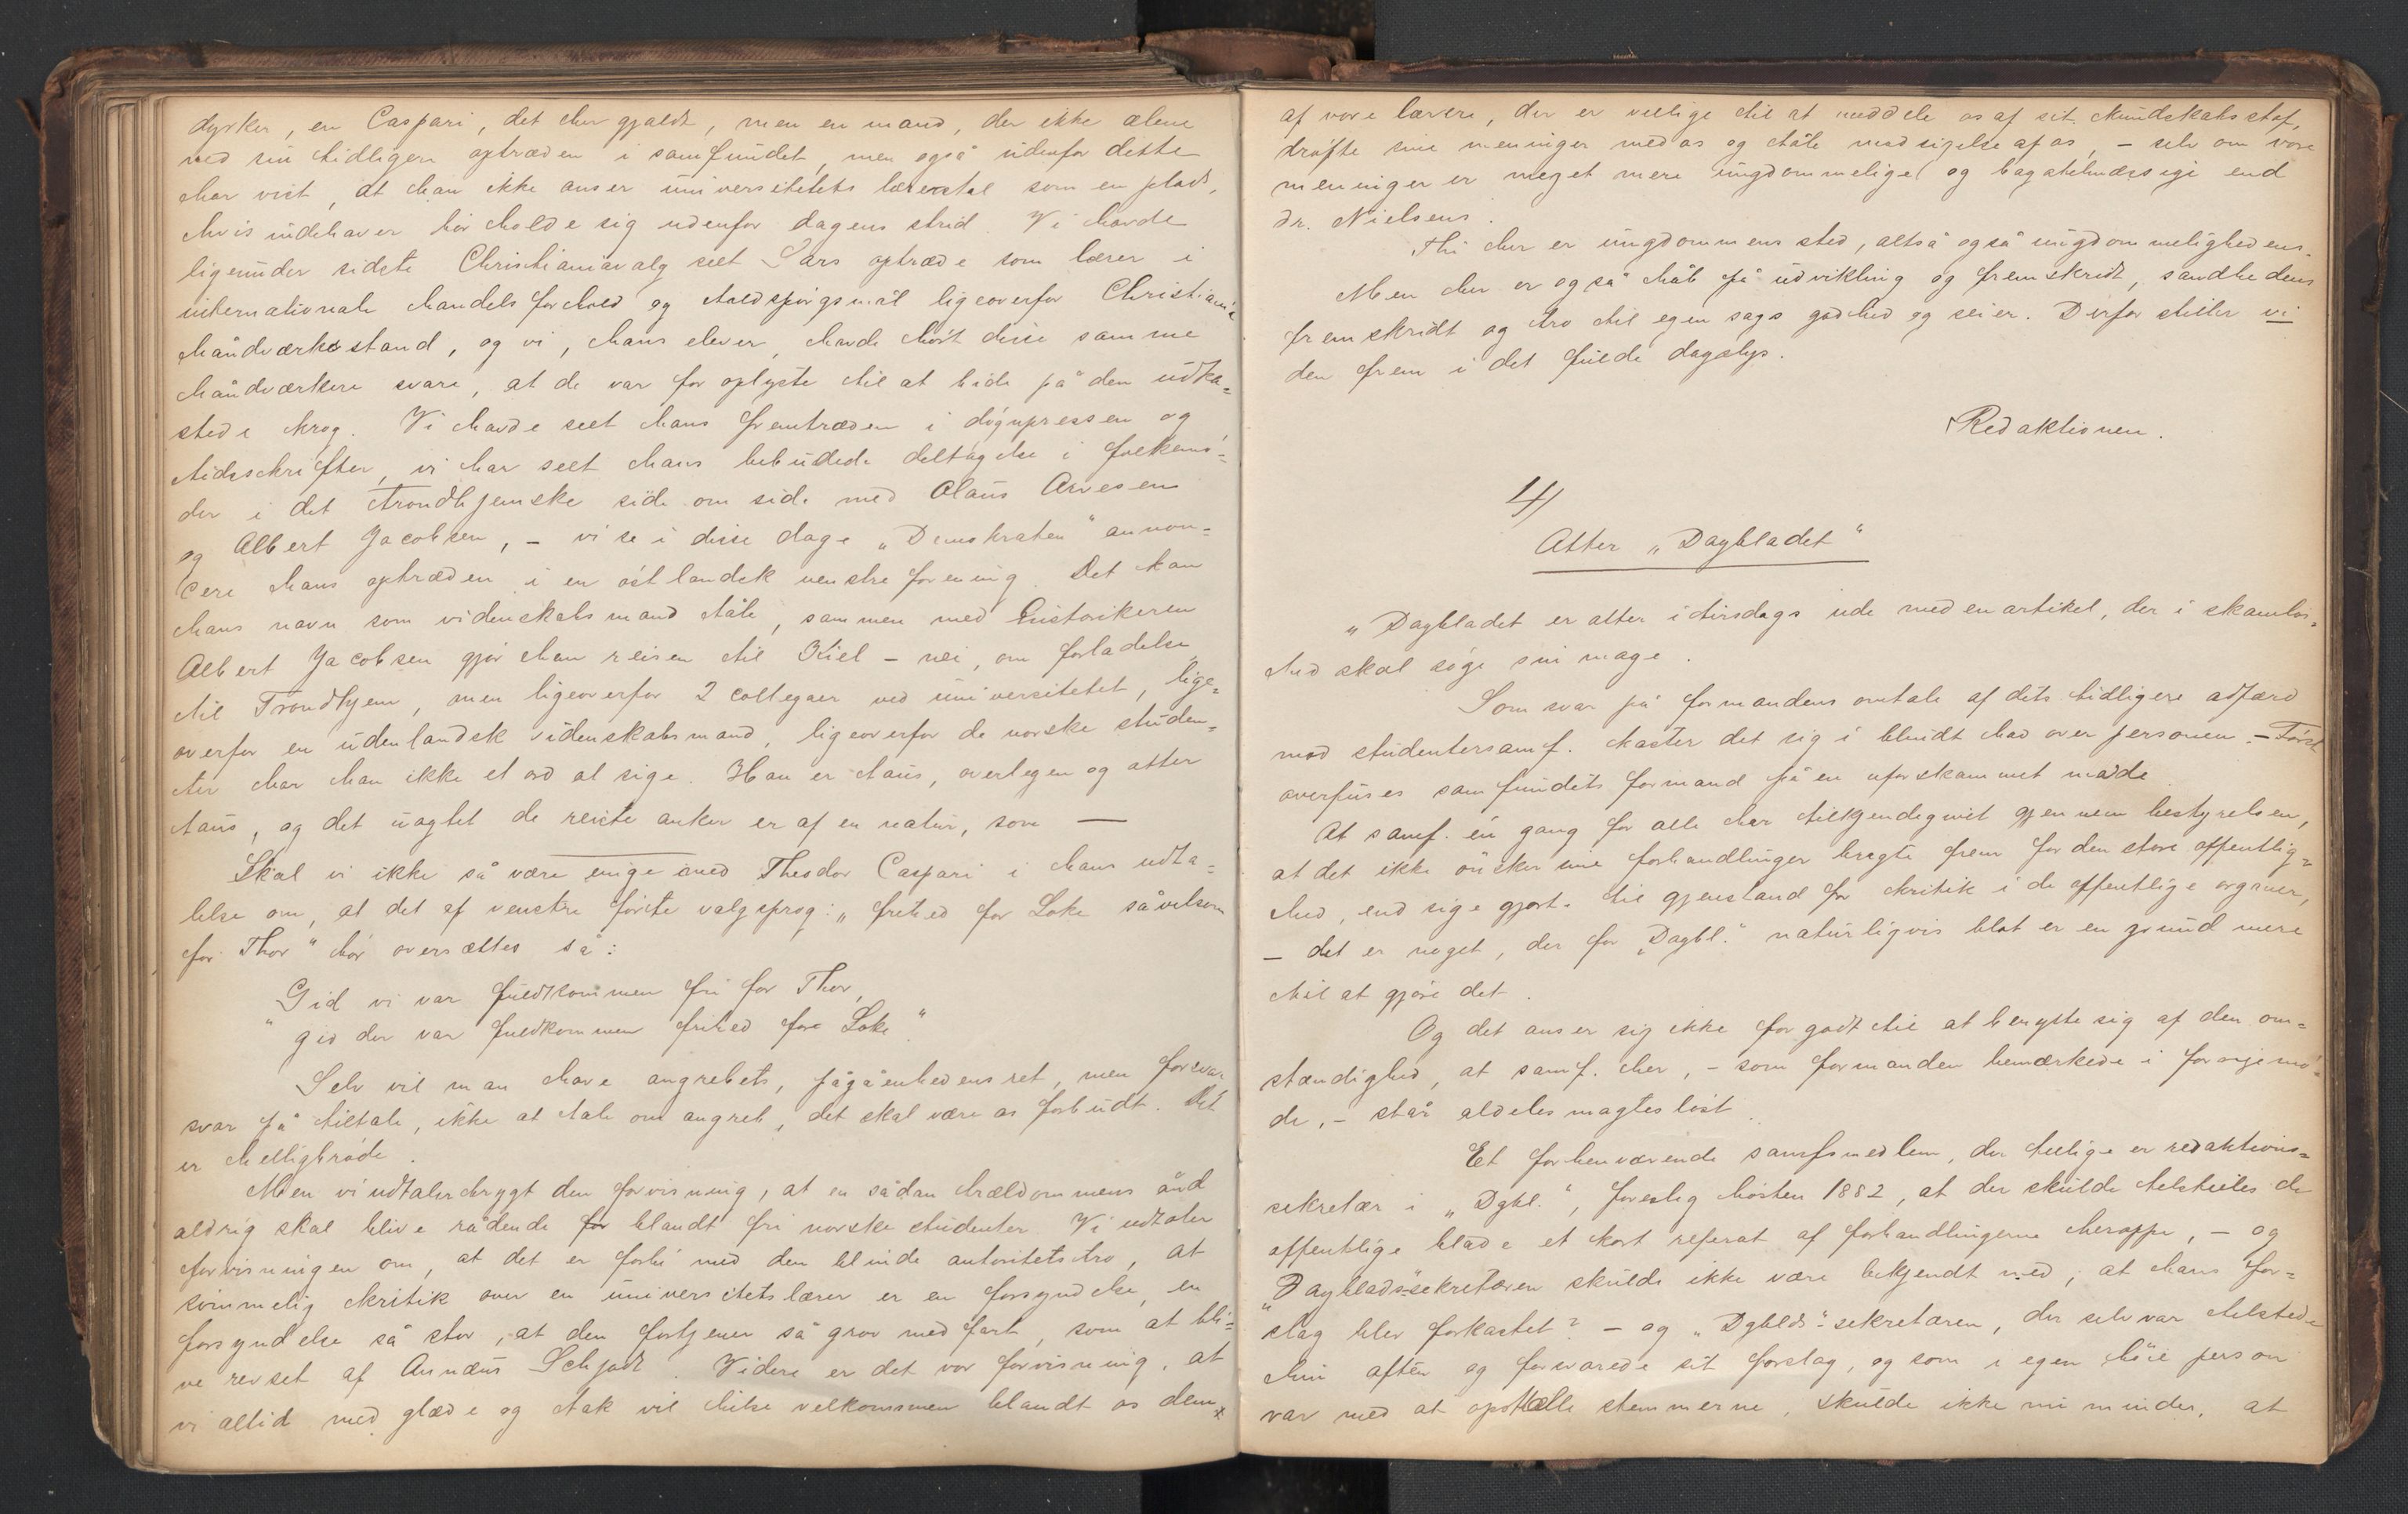 dyrker, en Caspari, det her gjaldt, men en mand, der ikke alene
ved sin tidligere optræden i samfundet, men også udenfor dette
har vist, at han ikke anser universitetets lærerstol som en plads,
hvis indehaver bør holde sig udenfor dagens strid. Vi havde
ligeunder sidste Christianiavalg seet Sars optræde som lærer i
internationale handelsforhold og toldspørgsmål ligeoverfor Christiania
håndværksstand, og vi, hans elever, havde hørt disse samme
håndværkere svare, at de var for oplyste til at bide på den udka=
stede krog. Vi havde seet hans fremtræden i døgnpressen og
tidsskrifter, vi har seet hans bebudede deltagelse i folkemø=
der i det trondhjemske side om side med Olaus Arvesen
og Albert Jacobsen, – vi se i disse dage „Demokraten“ annon=
cere hans optræden i en østlandsk venstreforening. Det kan
hans navn som videnskabsmand tåle, sammen med historikeren
Albert Jacobsen gjør han reisen til Kiel – nei, om forladelse,
til Trondhjem, men ligeoverfor 2 collegaer ved universitetet, lige=
overfor en udenlandsk videnskabsmand, ligeoverfor de norske studen=
ter har han ikke et ord at sige. Han er taus, overlegen og atter
taus, og det uagtet de reiste anker er af en natur, som —
Skal vi ikke så være enige med Theodor Caspari i hans udta=
lelse om, at det af venstre førte valgsprog: „frihed for Loke såvelsom
for Thor“ bør oversættes så:
Gid vi var fuldkommen fri for Thor,
„gid der var fuldkommen frihed for Loke“.
Selv vil man have angrebets, pågåenhedens ret, men forsvar
svar på tiltale, ikke at tale om angreb, det skal være os forbudt. Det
er helligbrøde.
Men vi udtaler trygt den forvisning, at en sådan trældommens ånd
aldrig skal blive rådende for blandt fri norske studenter. Vi udtaler
forvisningen om, at det er forbi med den blinde autoritetstro, at
sømmelig kritik over en universitetslærer er en forsyndelse, en
forsyndelse så stor, at den fortjener så grov medfart, som at bli=
ve revset af Annæus Schjødt. Videre er det vor forvisning, at
vi altid med glæde og tak vil hilse velkommen blandt os dem
af vore lærere, der er villige til at meddele os af sit kundskabsstof,
drøfte sine meninger med os og tåle modsigelse af os, – selv om vore
meninger er meget mere ungdommelige og bagatelmæssige end
dr. Nielsens.
Thi her er ungdommens sted, altså også ungdommelighedens.
Men her er også håb på udvikling og fremskridt, sandhedens
fremskridt og tro til egen sags godhed og seier. Derfor stiller vi
den frem i det fulde dagslys.
Redaktionen.
4/
Atter „Dagbladet“
„Dagbladet er atter i tirsdags ude med en artikel, der i skamløs=
hed skal søge sin mage.
Som svar på formandens omtale af dets tidligere adfærd
mod studentersamf. kaster det sig i blindt had over personen. – Først
overfuses samfundets formand på en uforskammet måde.
At samf. én gang for alle har tilkjendegivet gjennem bestyrelsen,
at det ikke ønsker sine forhandlinger bragte frem for den store offentlig=
hed, end sige gjort til gjenstand for kritik i de offentlige organer,
– det er noget, der for „Dagbl.“ naturligvis blot er en grund mere
til at gjøre det.
Og det anser sig ikke for godt til at benytte sig af den om=
stændighed, at samf. her, – som formanden bemærkede i forrige mø=
de, – står aldeles magtesløst.
Et forhenværende samfsmedlem, der tillige er redaktions=
sekretær i „Dgbl.“, foreslog høsten 1882, at der skulde tilstilles de
offentlige blade et kort referat af forhandlingerne heroppe, – og
„Dagblads“=sekretæren skulde ikke være bekjendt med, at hans for=
slag blev forkastet? – og „Dgblds“=sekretæren, der selv var tilstede
hin aften og forsvarede sit forslag, og som i egen høie person
var med at optælle stemmerne, skulde ikke nu mindes, at